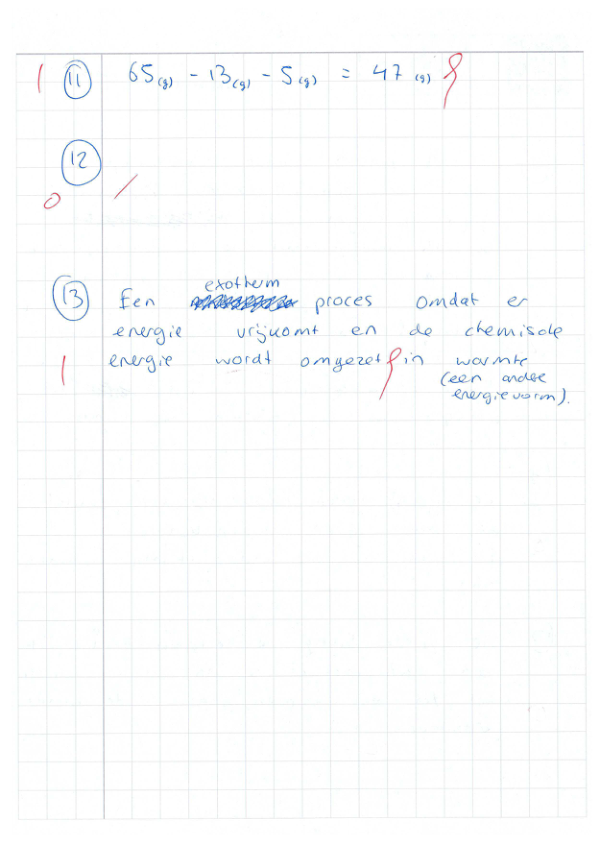 1 11 65(g) - 13(g) - 5(g) = 47 (g)
12
0
13 Een exotherm proces omdat er
energie vrijkomt en de chemische
1 energie wordt omgezet in warmte
(een andere
energievorm).